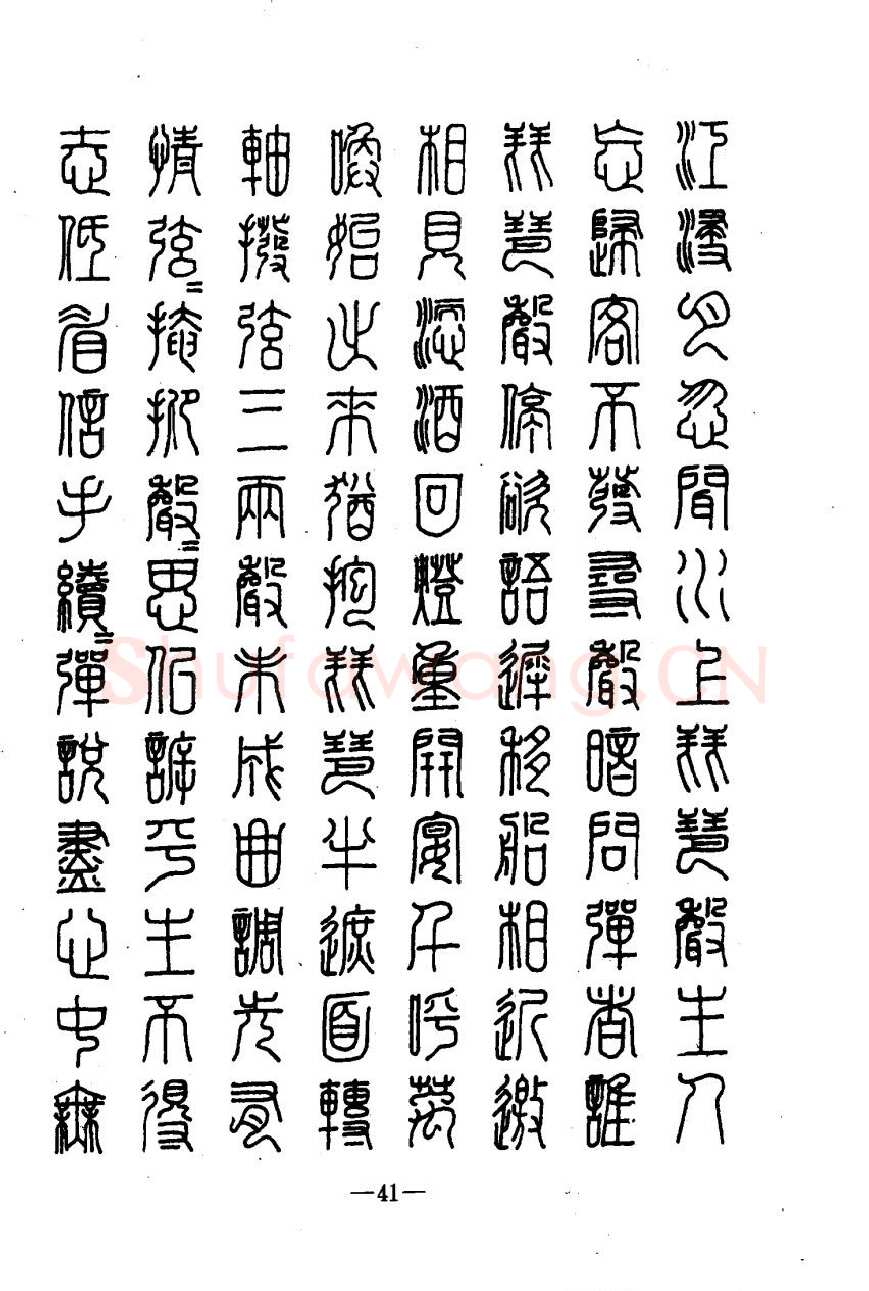 江浸月忽聞水上琵琶聲主人
忘歸客不發尋聲暗問彈者誰
琵琶聲停欲語遲移船相近邀
相見添酒回燈重開宴千呼萬
喚始出來猶抱琵琶半遮面轉
軸撥弦三兩聲未成曲調先有
情弦=掩抑聲=思似訴平生不得
志低眉信手續=彈說盡心中無
—41—
Shufawang.CN